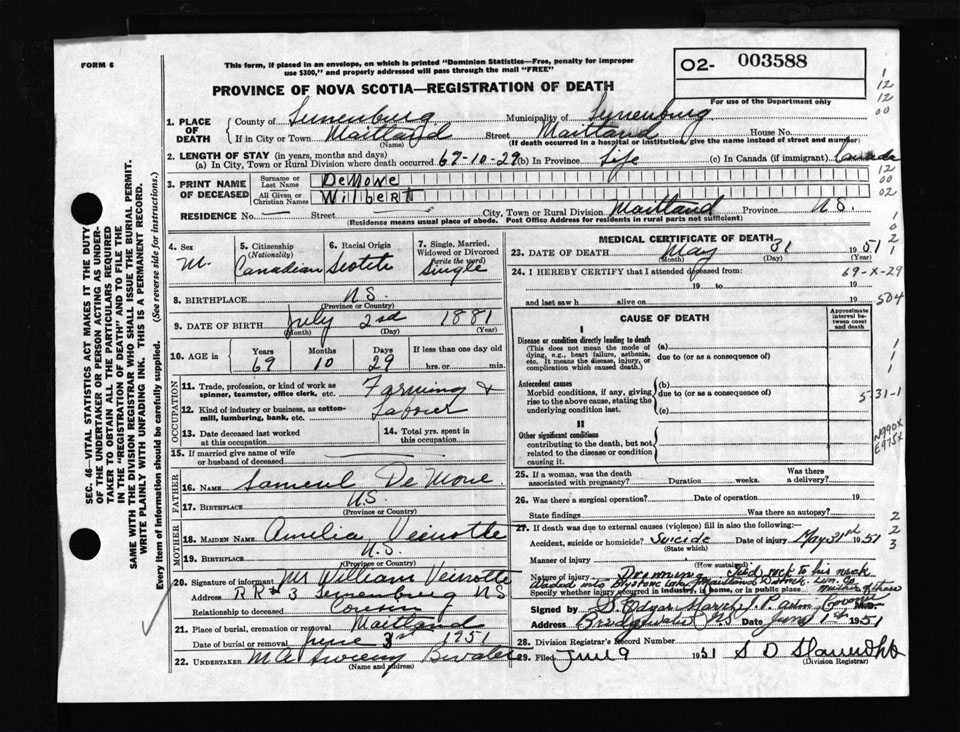 FORM 6
This form, if placed in an envelope, on which is printed "Dominion Statistics—Free, penalty for improper
use $300," and properly addressed will pass through the mail "FREE"
PROVINCE OF NOVA SCOTIA—REGISTRATION OF DEATH
O2- 003588
For use of the Department only
1. PLACE OF DEATH
County of Lunenburg Municipality of Lunenburg
If in City or Town Maitland Street Maitland House No.
(Name) (If death occurred in a hospital or institution, give the name instead of street and number)
2. LENGTH OF STAY (in years, months and days)
(a) In City, Town or Rural Division where death occurred 69-10-29 (b) In Province Life (c) In Canada (if immigrant) Canada
3. PRINT NAME OF DECEASED
Surname or Last Name DeMone
All Given or Christian Names Wilbert
RESIDENCE No. — Street City, Town or Rural Division Maitland Province N.S.
(Residence means usual place of abode. Post Office Address for residents in rural parts not sufficient)
4. Sex M.
5. Citizenship (Nationality) Canadian
6. Racial Origin Scotch
7. Single, Married, Widowed or Divorced (write the word) Single
8. BIRTHPLACE N.S.
(Province or Country)
9. DATE OF BIRTH July 2nd 1881
(Month) (Day) (Year)
10. AGE in Years 69 Months 10 Days 29 If less than one day old hrs. or min.
OCCUPATION
11. Trade, profession, or kind of work as spinner, teamster, office clerk, etc. Farming &
12. Kind of industry or business, as cotton-mill, lumbering, bank, etc. Laborer
13. Date deceased last worked at this occupation
14. Total yrs. spent in this occupation
15. If married give name of wife or husband of deceased
FATHER
16. NAME Samuel DeMone
17. BIRTHPLACE N.S.
(Province or Country)
MOTHER
18. MAIDEN NAME Amelia Veinotte
19. BIRTHPLACE N.S.
(Province or Country)
20. Signature of informant Mr William Veinotte
Address RR# 3 Lunenburg NS
Relationship to deceased Cousin
21. Place of burial, cremation or removal Maitland
Date of burial or removal June 3rd 1951
22. UNDERTAKER M.A. Sweeny B'water
(Name and address)
MEDICAL CERTIFICATE OF DEATH
23. DATE OF DEATH May 31 1951
(Month) (Day) (Year)
24. I HEREBY CERTIFY that I attended deceased from:
19 to 19
and last saw h alive on 19
CAUSE OF DEATH
Approximate interval between onset and death
I
Disease or condition directly leading to death
(This does not mean the mode of dying, e.g., heart failure, asthenia, etc. It means the disease, injury, or complication which caused death.)
(a)
due to (or as a consequence of)
Antecedent causes
Morbid conditions, if any, giving rise to the above cause, stating the underlying condition last.
(b)
due to (or as a consequence of)
(c)
II
Other significant conditions
contributing to the death, but not related to the disease or condition causing it.
25. If a woman, was the death associated with pregnancy? Duration weeks. Was there a delivery?
26. Was there a surgical operation? Date of operation 19
State findings Was there an autopsy?
27. If death was due to external causes (violence) fill in also the following:—
Accident, suicide or homicide? Suicide Date of injury May 31st 1951
(State which)
Manner of injury
(How sustained)
Nature of injury Drowning Tied rock to his neck
Specify whether injury occurred in industry, in home, or in public place
Signed by
Address Bridgewater NS Date June 1st 1951
28. Division Registrar's Record Number
29. Filed June 9 1951
(Division Registrar)
SEC. 46—VITAL STATISTICS ACT MAKES IT THE DUTY
OF THE UNDERTAKER OR PERSON ACTING AS UNDER-
TAKER TO OBTAIN ALL THE PARTICULARS REQUIRED
IN THE "REGISTRATION OF DEATH" AND TO FILE THE
SAME WITH THE DIVISION REGISTRAR WHO SHALL ISSUE THE BURIAL PERMIT.
WRITE PLAINLY WITH UNFADING INK. THIS IS A PERMANENT RECORD.
Every item of information should be carefully supplied. (See reverse side for instructions.)
1
12
12
00
12
00
02
69-X-29
504
5-31-1
N990X
E975X
2
2
3